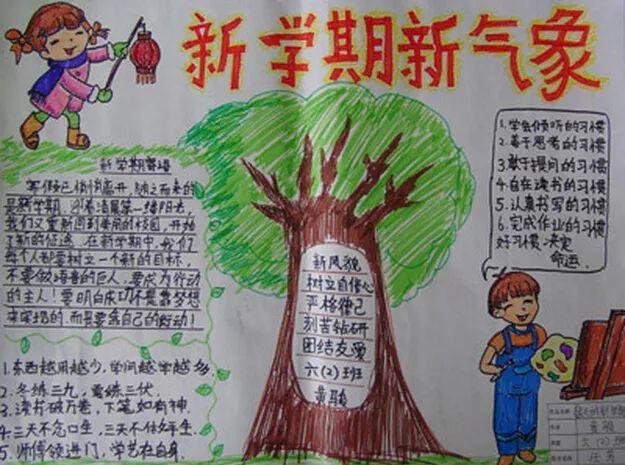 新学期新气象
新学期寄语
寒假已悄悄离开，随之而来的
是新学期。迎着清晨第一缕阳光，
我们又重新回到美丽的校园，开始
了新的征途。在新学期中，我们
每个人都要树立一个新的目标，
不要做语言的巨人，要成为行动
的主人！要明白成功不是靠梦想
来实现的，而是要靠自己的行动！
1.东西越用越少，学问越学越多。
2.冬练三九，夏练三伏。
3.读书破万卷，下笔如有神。
4.三天不念口生，三天不做手生。
5.师傅领进门，学艺在自身。
新风貌
树立自信心
严格律己
刻苦钻研
团结友爱
六(2)班
1.学会倾听的习惯
2.善于思考的习惯
3.敢于提问的习惯
4.自在读书的习惯
5.认真书写的习惯
6.完成作业的习惯
好习惯，决定
命运.
六(2)班